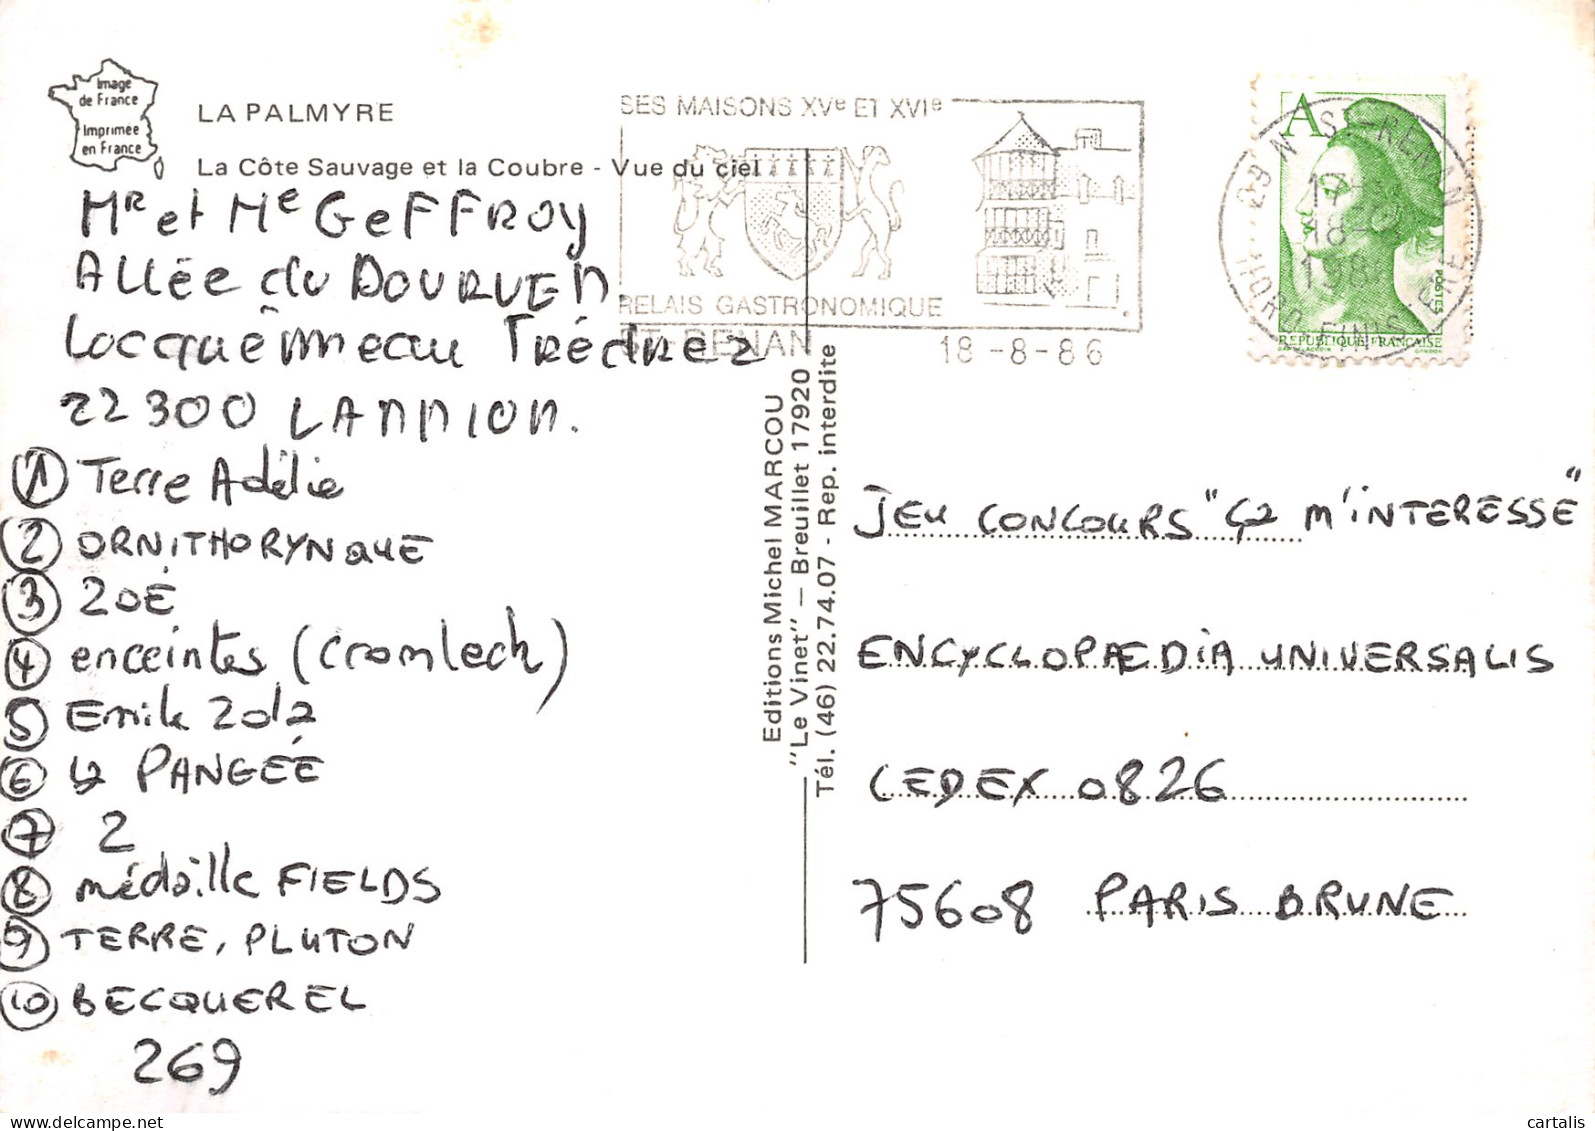 Image
de France
Imprimée
en France
LA PALMYRE
La Côte Sauvage et la Coubre - Vue du ciel
SES MAISONS XVe ET XVIe
RELAIS GASTRONOMIQUE
ST-RENAN
18-8-86
A
29 N ST-RENAN
17
18-8
198
NORD FINISTERE
POSTES
REPUBLIQUE FRANCAISE
Mr et Me GEFFROY
Allée du DOURVEN
Locquémeau Trédrez
22300 LANNION.
① Terre Adélie
② ORNITHORYNQUE
③ ZOÉ
④ enceintes (cromlech)
⑤ Emile Zola
⑥ La PANGÉE
⑦ 2
⑧ médaille FIELDS
⑨ TERRE, PLUTON
⑩ BECQUEREL
269
Editions Michel MARCOU
"Le Vinet" — Breuillet 17920
Tél. (46) 22.74.07 - Rep. interdite
JEU CONCOURS "Ça M'INTERESSE"
ENCYCLOPÆDIA UNIVERSALIS
CEDEX 0826
75608 PARIS BRUNE
cartalis